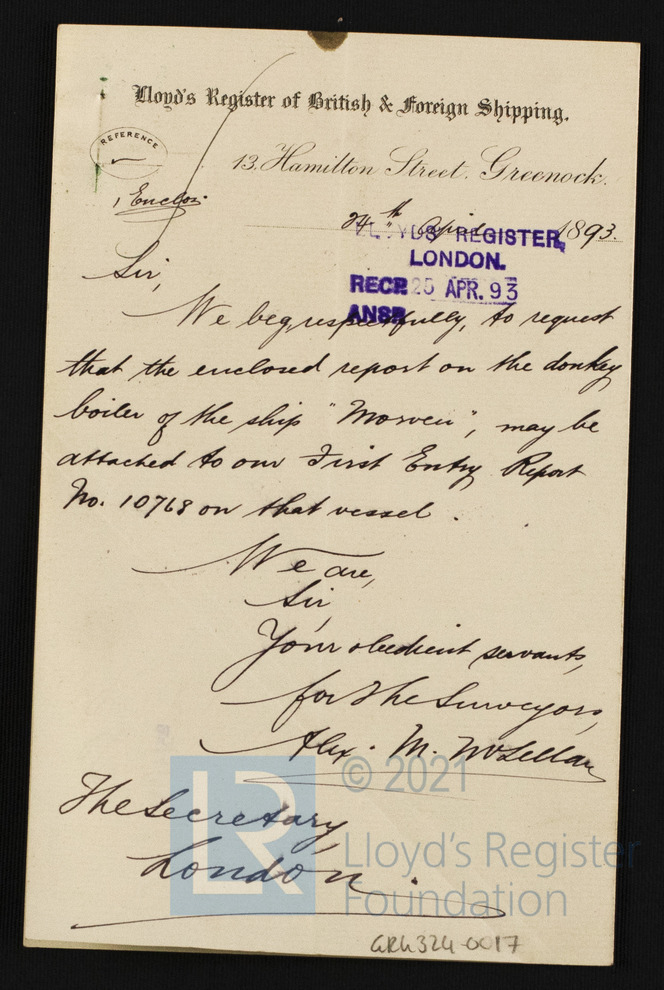 Lloyd's Register of British & Foreign Shipping.
REFERENCE
13, Hamilton Street. Greenock.
1 Enclos.
24th April 1893.
LLOYDS REGISTER,
LONDON.
RECD 25 APR. 93
ANSD
Sir,
We beg, respectfully, to request
that the enclosed report on the donkey
boiler of the ship "Morven", may be
attached to our First Entry Report
No. 10768 on that vessel.
We are,
Sir,
Your obedient servants,
for the Surveyors,
Alex. M. McLellan
The Secretary,
London.
© 2021
LR
Lloyd's Register
Foundation
GRK324-0017